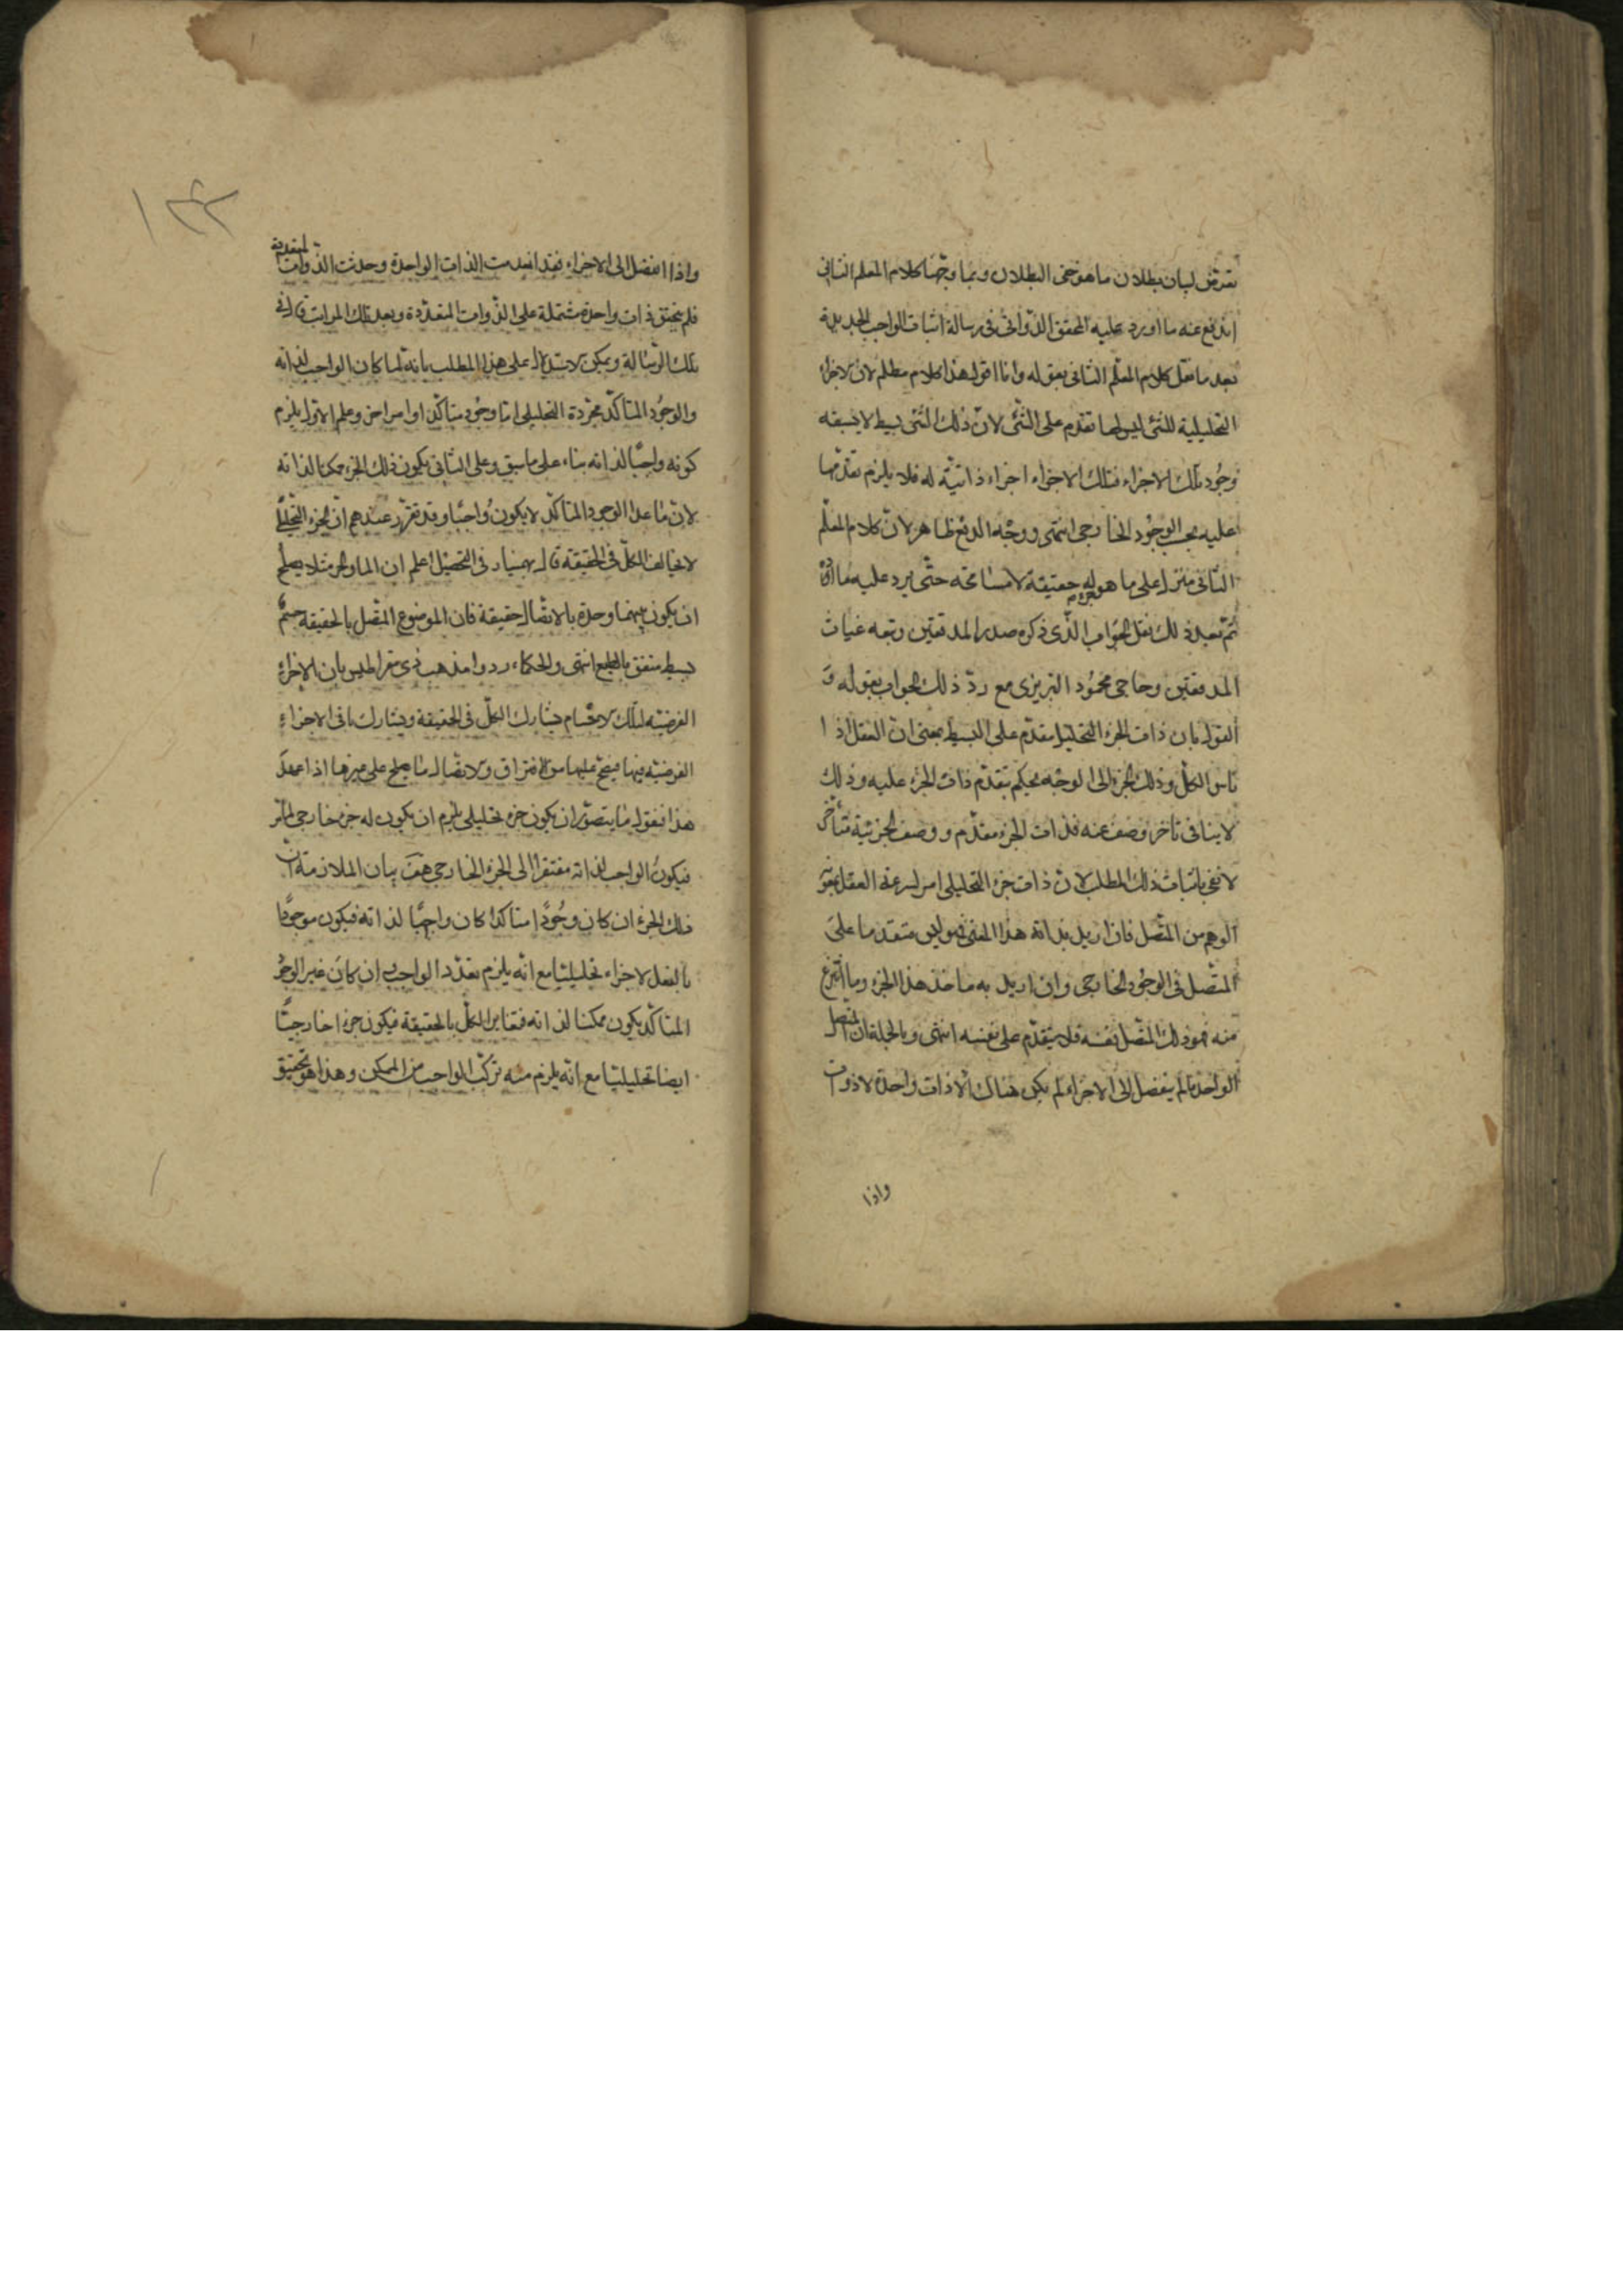 تعرض لبيان بطلان ما هو خفى البطلان وبما وجهنا كلام المعلم الثانى
اندفع عنه ما اورد عليه المحقق الدوانى فى رسالة اثبات الواجب الجديدة
بعد ما نقل كلام المعلم الثانى بقوله وانا اقول هذا كلام مظلم لان الاجزاء
التحليلية للشئ ليس لها تقدم على الشئ لان ذلك الشئ بسيط لا يسبقه
وجود تلك الاجزاء فتلك الاجزاء اجزاء ذاتية له فلا يلزم تقدمها
عليه بحسب الوجود الخارجى انتهى ووجه الدفع ظاهر لان كلام المعلم
الثانى منزل على ما هو جزء له حقيقة لا مسامحة حتى يرد عليه ما اورده
ثم بعد ذلك نقل الجواب الذى ذكره صدر المدققين وتبعه غياث
المدققين وحاجى محمود التبريزى مع رد ذلك الجواب بقوله و
القول بان ذات الجزء التحليلى مقدم على البسيط بمعنى ان العقل اذا
قاس الكل وذلك الجزء الى الوجه يحكم بتقدم ذات الجزء عليه وذلك
لا ينافى تاخر وصف عنه فذات الجزء مقدم ووصف الجزئية متأخر
لا نفى باثبات ذلك المطلب لان ذات جزء التحليلى امر ينتزعه العقل بقوة
الوهم من المتصل فان اريد بذاته هذا المعنى فهو ليس متقدما على
المتصل فى الوجود الخارجى وان اريد به ماخذ هذا الجزء وما انتزع
منه فهو ذلك المتصل نفسه فلا يتقدم على نفسه انتهى وبالجملة ان المتصل
الواحد ما لم ينفصل الى الاجزاء لم يكن هناك الا ذات واحدة لا ذوات
واذا
١٣٢
واذا انفصل الى الاجزاء فقد انعدمت الذات الواحدة وحدثت الذوات المتعددة
فلم يتحقق ذات واحدة مشتملة على الذوات المتعددة وبعد تلك المراتب قال فى
تلك الرسالة ويمكن الاستدلال على هذا المطلب بانه لما كان الواجب لذاته
والوجود المتأكد مجزءه التحليلى اما وجود متأكد او امر اخر وعلى الاول يلزم
كونه واجبا لذاته بناء على ما سبق وعلى الثانى يكون ذلك الجزء ممكنا لذاته
لان ما عدا الوجود المتأكد لا يكون واجبا وقد تقرر عندهم ان الجزء التحليلى
لا يخالف الكل فى الحقيقة قال بهمنيار فى التحصيل اعلم ان الماء والخمر مثلا يصلح
ان يكون بينهما وحدة بالاتصال حقيقة فان الموضوع المتصل بالحقيقة جسم
بسيط متفق بالطبع انتهى والحكماء ردوا مذهب ذى مقراطيس بان الاجزاء
الفرضية لتلك الاجسام يشارك الكل فى الحقيقة ويشارك باقى الاجزاء
الفرضية فيها فيصح عليها من الافتراق والاتصال ما يصلح على غيرها اذا تمهد
هذا فنقول ما يتصور ان يكون جزء تحليلى يلزم ان يكون له جزء خارجى اخر
فيكون الواجب لذاته مفتقرا الى الجزء الخارجى هف بيان الملازمة ان
ذلك الجزء ان كان وجودا متأكدا كان واجبا لذاته فيكون موجودا
بالفعل لا جزاء تحليليا مع انه يلزم تعدد الواجب ان كان غير الوجود
المتأكد يكون ممكنا لذاته فتغاير الكل بالحقيقة فيكون جزءا خارجيا
ايضا تحليليا مع انه يلزم منه تركب الواجب من الممكن وهذا هو تحقيق